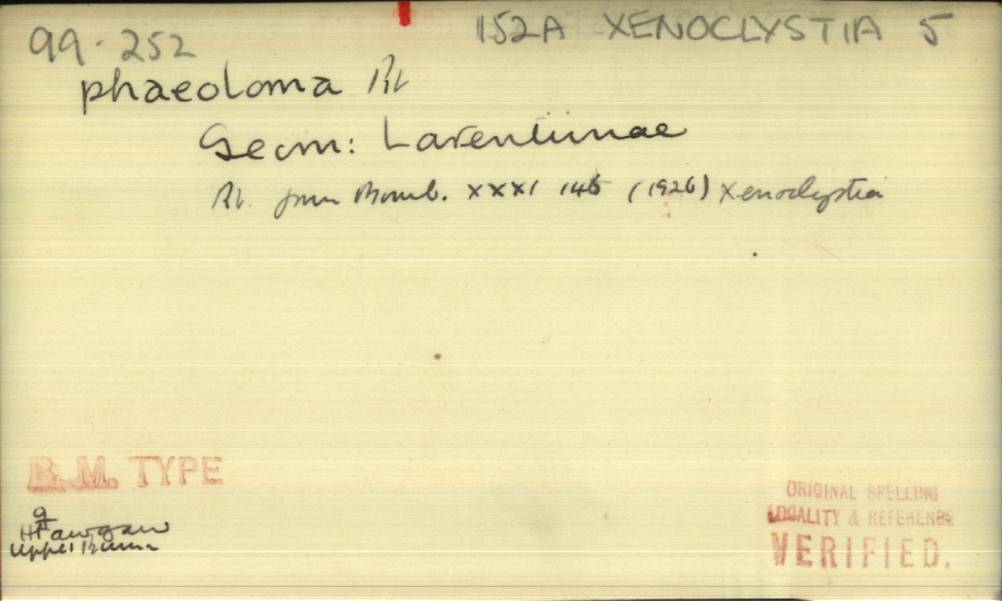 99.252
152A XENOCLYSTIA 5
phaeoloma
Geom: Larentiinae
Bomb. XXXI 145 (1926) Xenoclystia
B. M. TYPE
Htawgaw
Upper Burma
ORIGINAL SPELLING
LOCALITY & REFERENCE
VERIFIED.